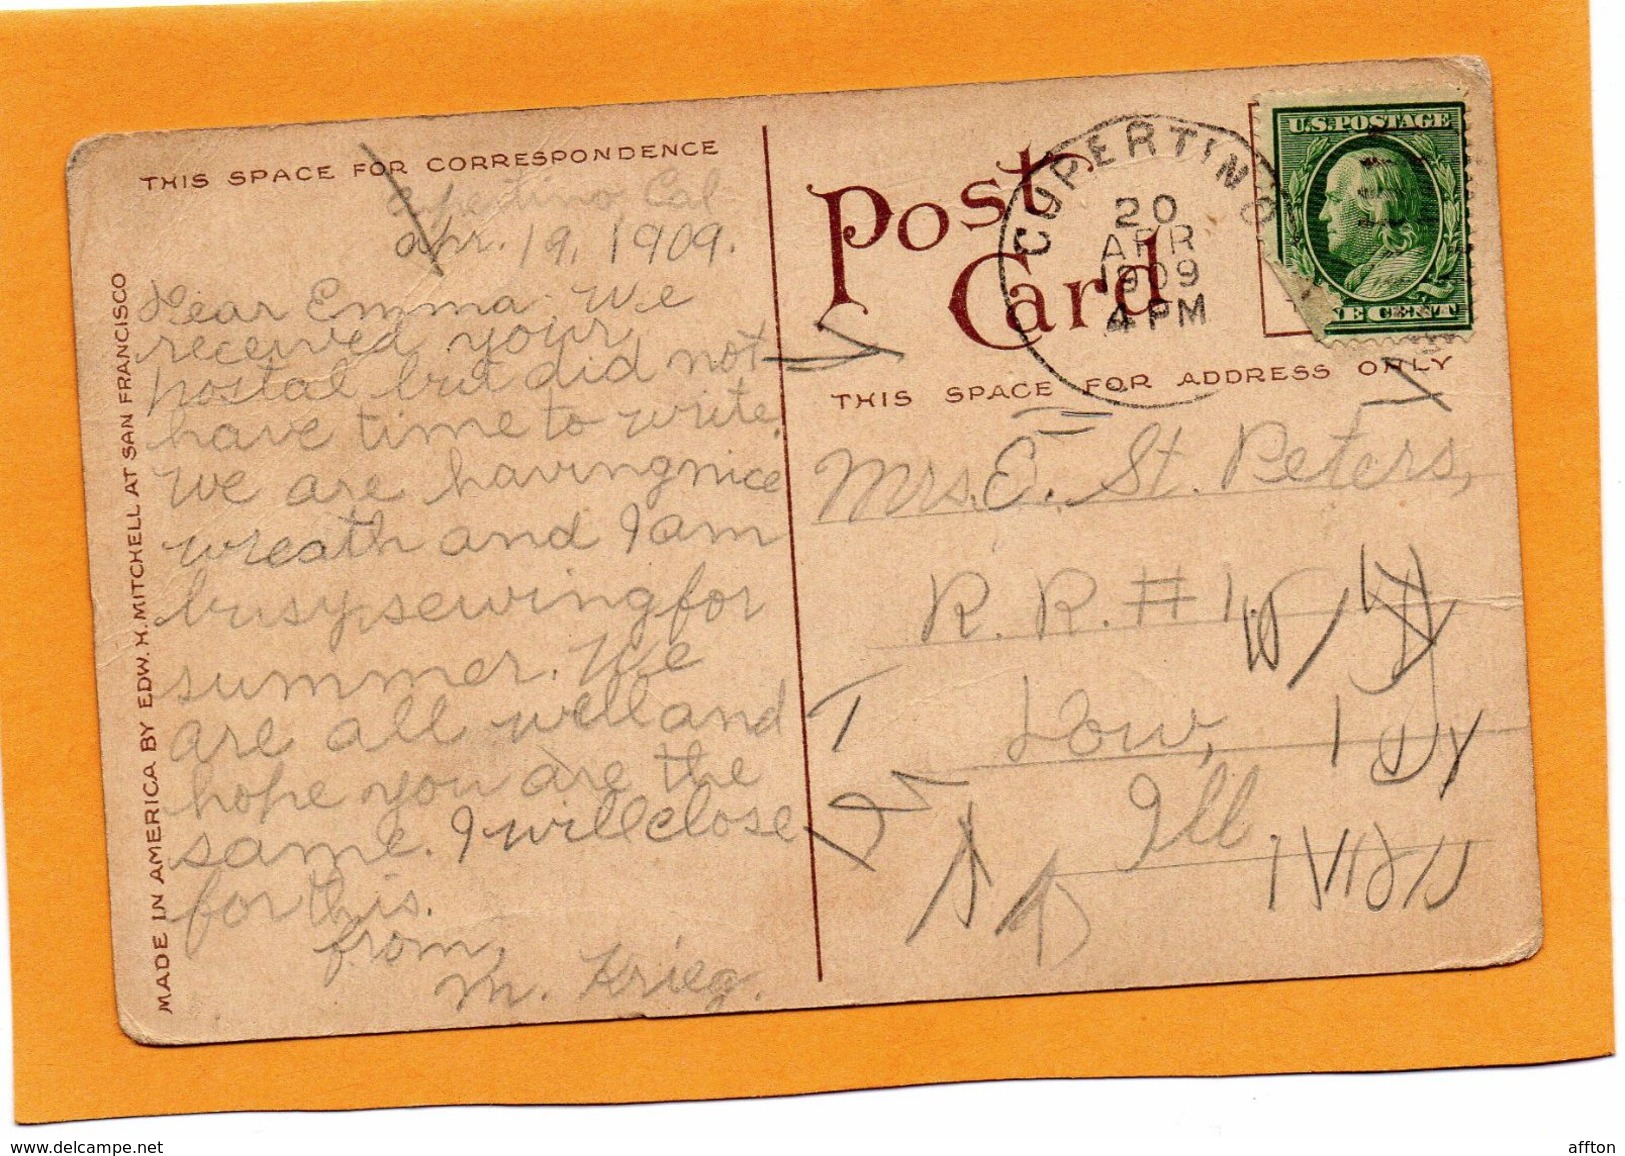 THIS SPACE FOR CORRESPONDENCE
Cupertino Cal
Apr. 19, 1909.
Dear Emma: We
received your
postal but did not
have time to write.
We are having nice
wreath and I am
busy sewing for
summer. We
are all well and
hope you are the
same. I will close
for this.
from,
M. Krieg.
MADE IN AMERICA BY EDW. H. MITCHELL AT SAN FRANCISCO
Post
Card
CUPERTINO
20
APR
1909
4 PM
U.S. POSTAGE
NE CENT
THIS SPACE FOR ADDRESS ONLY
Mrs. E. St. Peters,
R. R. # 1
Low,
Ill.
www.delcampe.net
affton